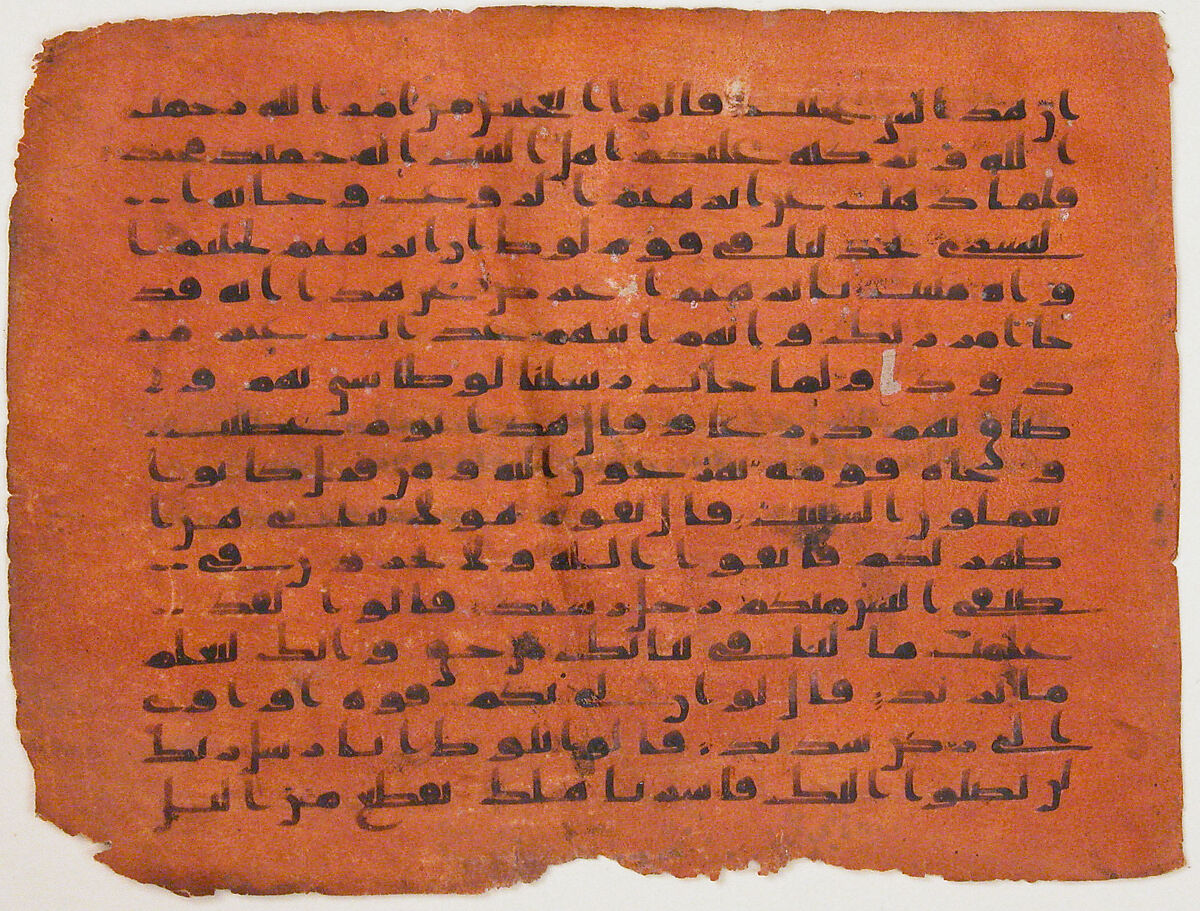 ان هذا لشى عجيب قالوا اتعجبين من امر الله رحمت
الله و بركته عليكم اهل البيت انه حميد مجيد
فلما ذهب عن ابرهيم الروع و جاته ا
لبشرى يجدلنا فى قوم لوط ان ابرهيم لحليم ا
واه منيب يابرهيم اعرض عن هذا انه قد
جا امر ربك و انهم اتيهم عذاب غير مر
دود و لما جات رسلنا لوطا سى بهم و
ضاق بهم ذرعا و قال هذا يوم عصيب
و جاه قومه يهرعون اليه و من قبل كانوا
يعملون السيت قال يقوم هولا بناتى هن ا
طهر لكم فاتقوا الله و لا تخزون فى
ضيفى اليس منكم رجل رشيد قالوا لقد
علمت ما لنا فى بناتك من حق و انك لتعلم
ما نريد قال لو ان لى بكم قوه او اوى
الى ركن شديد قالوا يلوط انا رسل ربك
لن يصلوا اليك فاسر باهلك بقطع من اليل